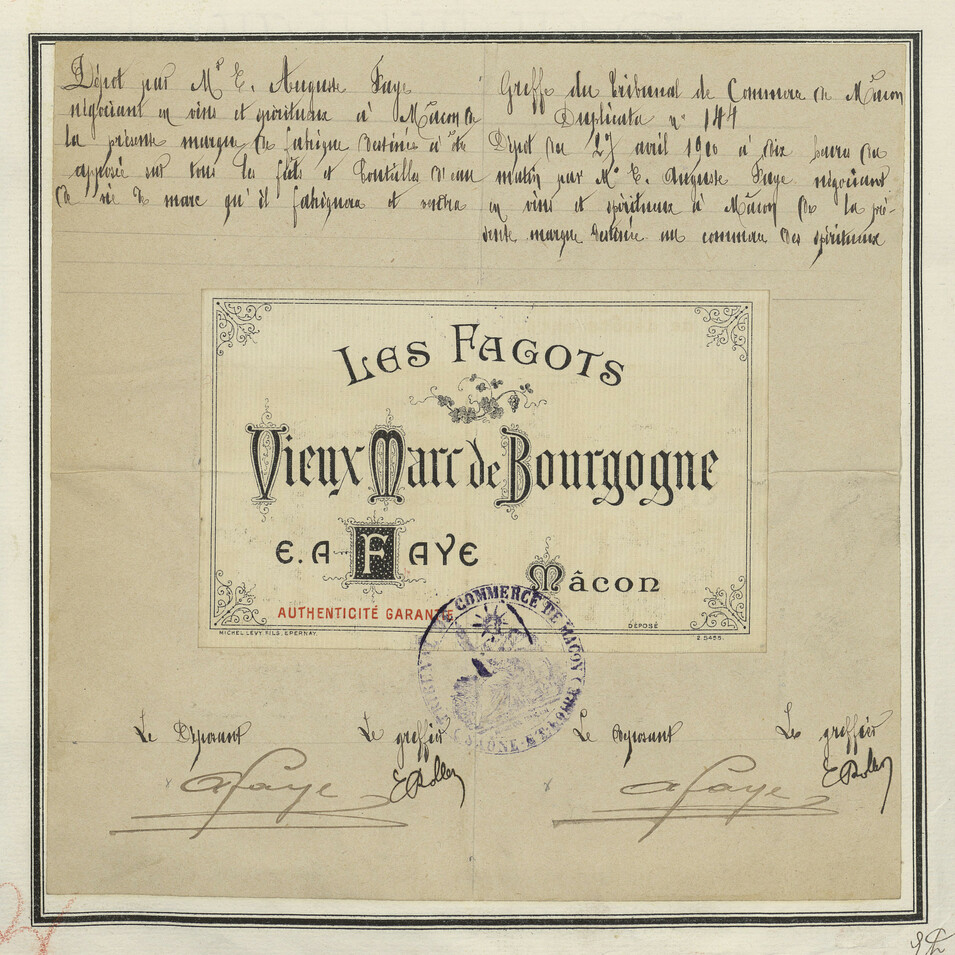 Dépot par Mr E. Auguste Faye
négociant en vins et spiritueux à Mâcon de
la présente marque de fabrique destinée à être
apposée sur tous les fûts et bouteilles d'eau
de vie de marc qu'il fabriquera et vendra
Greffe du Tribunal de Commerce de Mâcon
Duplicata n° 144
Dépot du 27 avril 1900 à dix heures du
matin par Mr E. Auguste Faye négociant
en vins et spiritueux à Mâcon de la pré-
sente marque destinée au commerce des spiritueux
LES FAGOTS
Vieux Marc de Bourgogne
E. A FAYE
Mâcon
AUTHENTICITÉ GARANTIE
DÉPOSÉ
MICHEL LÉVY FILS, EPERNAY.
TRIBUNAL DE COMMERCE DE MACON (SAÔNE-ET-LOIRE)
Le Déposant Le greffier Le Déposant Le greffier
a faye
a faye